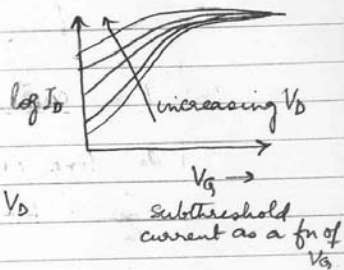 log I_D
increasing V_D
V_G →
V_D
subthreshold
current as a fn of
V_G